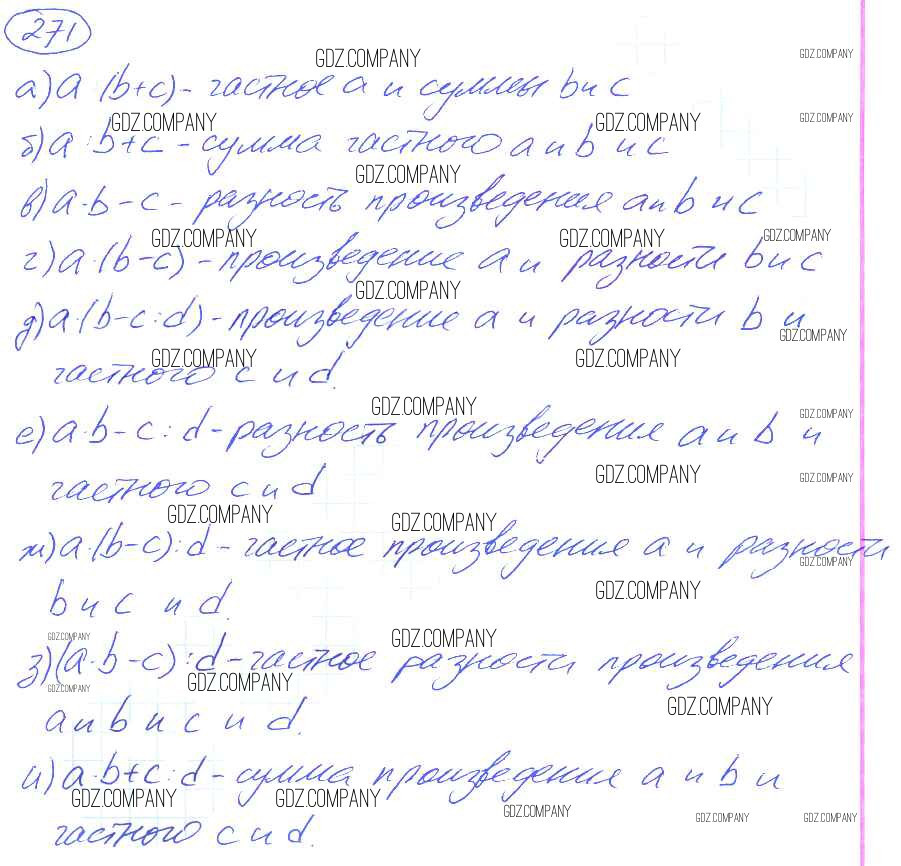 271
GDZ.COMPANY GDZ.COMPANY
а) a (b+c) - частное a и суммы b и c
GDZ.COMPANY GDZ.COMPANY GDZ.COMPANY
б) a : b+c - сумма частного a и b и c
GDZ.COMPANY
в) a·b-c - разность произведения a и b и c
GDZ.COMPANY GDZ.COMPANY GDZ.COMPANY
г) a·(b-c) - произведение a и разности b и c
GDZ.COMPANY
д) a·(b-c:d) - произведение a и разности b и
GDZ.COMPANY
GDZ.COMPANY GDZ.COMPANY
частного c и d.
GDZ.COMPANY GDZ.COMPANY
е) a·b-c:d - разность произведения a и b и
GDZ.COMPANY GDZ.COMPANY
частного c и d
GDZ.COMPANY GDZ.COMPANY
ж) a·(b-c):d - частное произведения a и разности
GDZ.COMPANY
GDZ.COMPANY
b и c и d.
GDZ.COMPANY GDZ.COMPANY
з) (a·b-c):d - частное разности произведения
GDZ.COMPANY GDZ.COMPANY
GDZ.COMPANY
a и b и c и d.
и) a·b+c:d - сумма произведения a и b и
GDZ.COMPANY GDZ.COMPANY GDZ.COMPANY GDZ.COMPANY GDZ.COMPANY
частного c и d.